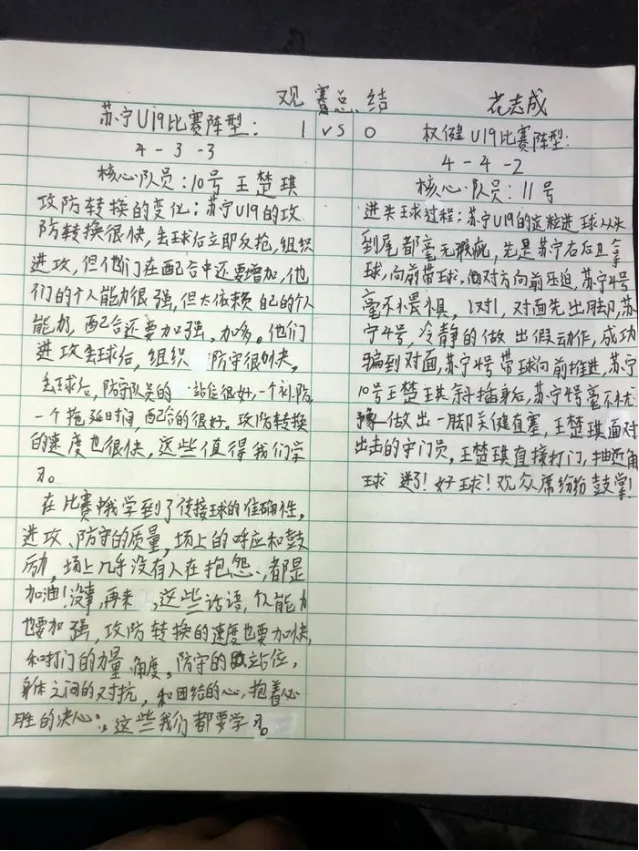 观赛总结 花志成
苏宁U19比赛阵型: 1 vs 0 权健U19比赛阵型:
4-3-3
核心队员:10号王楚琪
攻防转换的变化:苏宁U19的攻
防转换很快,丢球后立即反抢,组织
进攻,但他们在配合中还要增加,他
们的个人能力很强,但太依赖自己的个人
能力,配合还要加强,加多。他们
进攻丢球后,组织防守很快,
丢球后,防守队员的站位很好,一个补防,
一个拖延时间,配合的很好。攻防转换
的速度也很快,这些值得我们学
习。
在比赛中我学到了传接球的准确性,
进攻、防守的质量,场上的呼应和鼓
励,场上几乎没有人在抱怨,都是
加油!没事,再来,这些话语,个人能力
也要加强,攻防转换的速度也要加快,
和打门的力量、角度。防守的站位,
身体之间的对抗,和团结的心,抱着必
胜的决心,这些我们都要学习。
4-4-2
核心队员:11号
进失球过程:苏宁U19的这粒进球从头
到尾都毫无瑕疵,先是苏宁右后卫拿
球,向前带球,面对方向前压迫,苏宁4号
毫不畏惧,1对1,对面先出脚,苏
宁4号,冷静的做出假动作,成功
骗到对面,苏宁4号带球向前推进,苏宁
10号王楚琪斜插身后,苏宁4号毫不犹
豫做出一脚关健直塞,王楚琪面对
出击的守门员,王楚琪直接打门,抽近角
球进了!好球!观众席纷纷鼓掌!